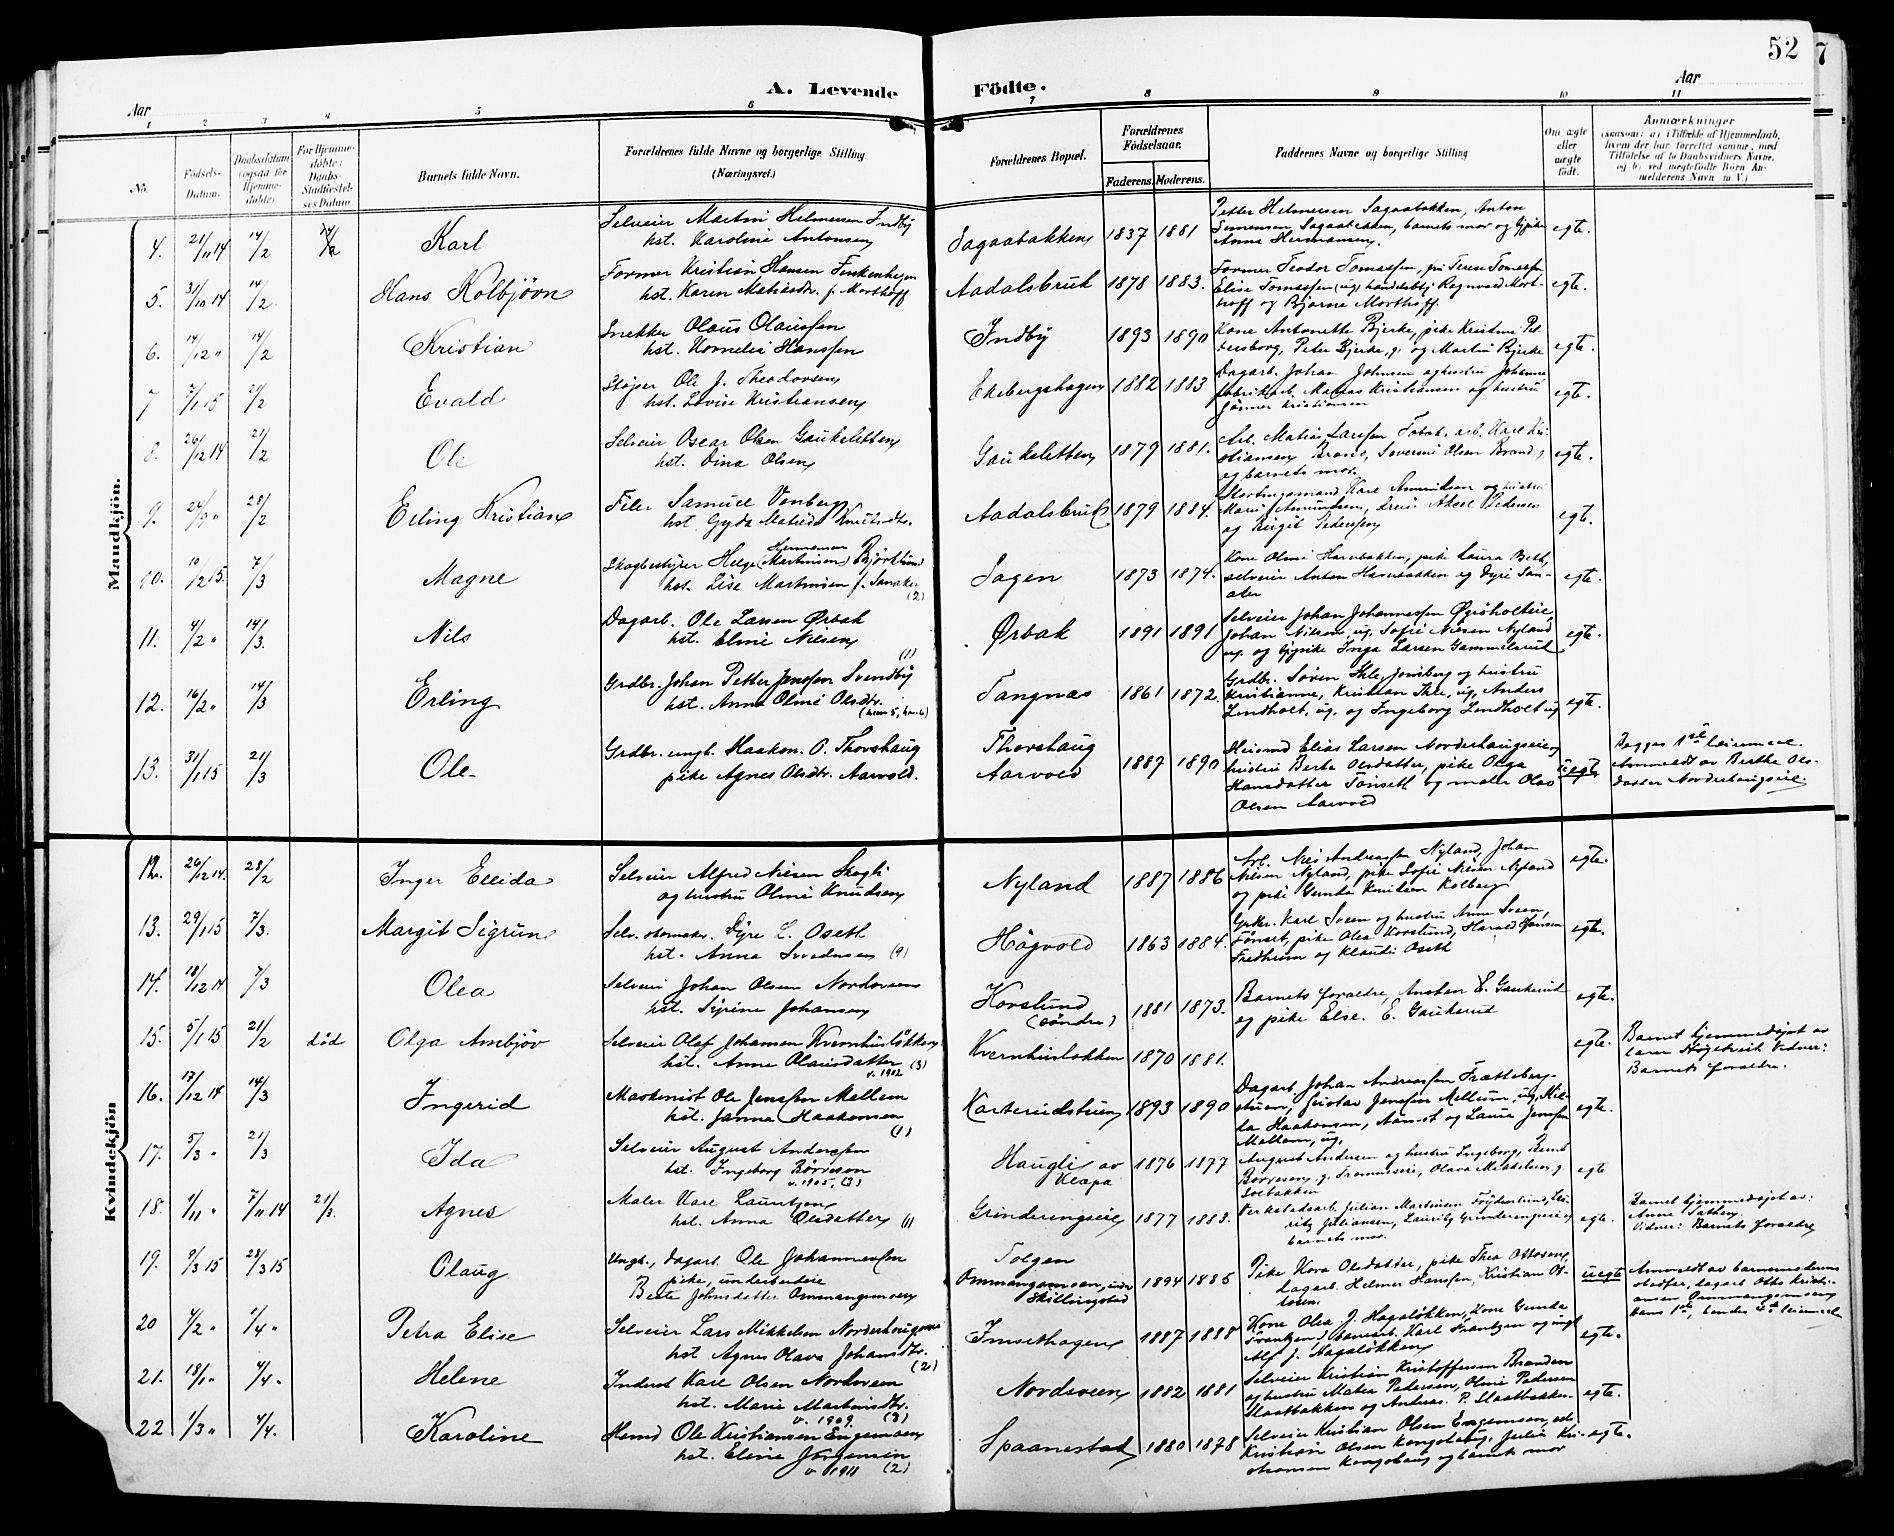 52
7
A. Levende Födte.
Aar
Aar
1 2 3 4 5 6 7 8 9 10 11
No.
Födsels-Datum.
Daabsdatum (ogsaa for Hjemmedøbte)
For Hjemmedøbte: Daabs-Stadfæstelses Datum.
Barnets fulde Navn.
Forældrenes fulde Navne og borgerlige Stilling (Næringsvei.)
Forældrenes Bopæl.
Forældrenes Födselsaar.
Faderens. Moderens.
Faddernes Navne og borgerlig Stilling
Om ægte eller uægte födt.
Anmærkninger
Mandkjön.
4. 21/11 14 14/2 Karl
Selveier Martin Helmersen Indby
hst. Karoline Antonsen
Sagaabakken 1837 1881
Petter Helmersen Sagaabakken, Anton
Simensen Sagaabakken, barnets mor og
Anna Hermansen.
egte.
5. 31/10 14 14/2. Hans Kolbjörn
Former Kristian Hansen Finkenhagen
hst. Karen Matiasdtr. f. Morthoff
Aadalsbruk 1878 1883.
Former Teodor Tomassen, fru Terese Tomassen
Elise Tomassen (ug) handelsbtj. Ragnvald Mort-
hoff og Bjarne Morthoff.
egte.
6. 14/12 " 14/2 Kristian
Snekker Olaus Olaussen
hst. Kornelia Hanssen
Indby 1893 1890
Kone Antonette Bjerke, pike Kristine Pet-
tersborg, Peter Bjerke, g. og Martin Bjerke
egte.
7 7/1 15 21/2 Evald
Støper Ole J. Theodorsen
hst. Lovise Kristiansen
Ekebergshagen 1882 1883
Dagarb. Johan Johnsen og hustru Johanne
fabrikarb. Matias Kristiansen og hustru
egte.
8. 26/12 14 21/2 Ole
Selveier Oscar Olsen Gaukeletten
hst. Dina Olsen
Gaukeletten 1879 1881.
Arb. Matias Larssen Fabak, arb. Karl Kri-
stiansen Brand, Severine Olsen Brand,
og barnets mor.
egte.
9. 24/9 " 28/2 Erling Kristian
Filer Samuel Vonberg
hst Gyda Matilde Knutsdtr.
Aadalsbruk 1879 1884.
Stortingsmand Karl Amundsen og hustru
Marie Amundsen, dreier Aksel Pedersen
og Birgit Pedersen
egte.
10. 10/2 15. 7/3 Magne
Skogbestyrer Helge (Martinsen) Hermansen Björklund
hst. Lise Martinsen f. Sanaker
(2)
Sagen 1873 1874.
Kone Oline Havebakken, pike Laura Beth,
selveier Anton Havebakken og Dyre San-
aker
egte.
11. 4/2 " 14/3. Nils
Dagarb. Ole Larsen Ørbak
hst. Eline Nilsen
(1)
Ørbak 1891 1891
Selveier Johan Johannessen Øgisholteie,
Johan Nilsen, ug. Sofie Nilsen Nyland
ug. og tjpike Inga Larsen Gammelsrud
egte.
12. 16/2 " 14/3 Erling
Grdbr. Johan Petter Jenssen Svendby
hst. Anna Oline Olsdtr.
Tangnæs 1861 1872.
Grdbr. Søren Ihle, Jønsberg og hustru
Kristianne, Kristian Ihle, ug, Anders
Lindholt, ug. og Ingeborg Lindholt ug
egte.
13. 31/1 15 21/3 Ole
Grdbr. ungk. Haakon O. Thorshaug
pike Agnes Olsdtr. Aarvold.
Thorshaug
Aarvold 1887 1890
Husmd Elias Larsen Norderhaugseie,
hustru Berte Olsdatter, pike Olga
Hansdatter Tønseth og maler Olav
Olsen Aarvold
uegte
Begges 1ste leiermaal.
Anmeldt av Berthe Ols-
datter Norderhaugseie.
Kvindekjön
12. 26/12 14. 28/2 Inger Elida
Selveier Alfred Nilsen Skogli
og hustru Oline Knudsen
Nyland 1887 1886
Arb. Nils Andreassen Nyland, Johan
Nilsen Nyland, pike Sofie Nilsen Nyland
og pike Gunda Knudsen Kolberg
egte.
13. 29/1 15 7/3. Margit Sigrun
Selv. Dyre L. Oseth
hst. Anna Svendsen (4)
Høgvold 1863 1884.
Karl Sveen og hustru Anne Sveen,
Tønset, pike Olea Korslund, Harald Hansen
Fredheim og Klaudi Oseth
egte.
14. 18/12 14 7/3 Olea
Selveier Johan Olsen Nordsveen
hst. Syrine Johansen
Korslund
(søndre) 1881 1873.
Barnets forældre, Anstan E. Gaukerud
og pike Else E. Gaukerud
egte.
15. 5/1 15 21/2 død Olga Ambjör
Selveier Olef Johansen Kvernhusløkken
hst. Anne Olausdatter
v. 1902 (3)
Kvernhusløkken 1870 1881.
egte.
Barnet hjemmedøpt av
lærer Høgetveit Vidner:
Barnets forældre.
16. 17/12 14 14/3 Ingerid
Maskinist Ole Jenssen Mellem
hst. Janna Haakonsen
(1)
Karterudstuen 1893 1890
Dagarb. Johan Andreassen Frætteberg-
stuen, Gustav Jenssen Mellem, ug, Hil-
da Haakonsen, Aamot og Laura Jenssen
Mellem, ug.
egte.
17. 5/3 " 21/3 Ida
Selveier August Anderssen
hst. Ingeborg Börresen
v. 1905, (3)
Haugli av
Klæpa 1876 1877
August Andersen og hustru Ingeborg, Bernt
Børresen, g. Olava Mikkelsen, g.
Solbakken
egte
18. 1/11 " 7/11 14 21/3. Agnes
Maler Karl Lauritzen
hst. Anna Olsdatter (1)
Grinderengseie 1877 1883.
Verkstedsarb. Julian Martinsen Frydenlund, Lau-
ritz Juliansen, Lauritz Grinderengseie og
barnets mor.
egte.
Barnet hjemmedøpt av:
Anne Sæther.
Vidner: Barnets forældre
19. 9/3 15 28/3 15 Olaug
Ungk., dagarb. Ole Johannessen
pike, underbudeie
Berte Johnsdatter Ommangsmoen
Tolgen
Ommangsmoen, under
Skillingstad 1894 1885
Pike Kora Olsdatter, pike Thea Ottosen,
dagarb. Helmer Hanssen, Kristian Ot-
tosen.
uegte
Anmeldt av barnemoderens
stedfar, dagarb. Otto Kristi-
ansen Ommangsmoen
hans 1ste, hendes 4de leiermaal
20 4/2 " 1/4 " Petra Elise
Selveier Lars Mikkelsen Norderhaug
hst Agnes Olava Johansdtr.
(2)
Imsethagen 1887 1888
Kone Olea J. Hagaløkken, Kone Gunda
Frantzen, banearb. Karl Frantzen og ungk.
Alf J. Hagaløkken
egte.
21. 18/1 " 4/4 " Helene
Inderst Karl Olsen Nordsveen
hst. Marie Martinsdtr.
v. 1909. (3)
Nordsveen 1882 1881
Selveier Kristian Kristoffersen Branden
og hustru Matea Pedersen, Oline Pedersen
Slaatbakken og Andreas P. Slaatbakken
egte.
22 1/3 " 4/4. Karoline
Husmd Ole Kristiansen Engemoen
hst. Eline Jörgensen
v 1911 (2)
Spaanestad 1880 1878
Selveier Kristian Olsen Engemoen,
Kristian Olsen Kongshaug, Julie Kri-
stiansen Kongshaug og barnets mor
egte.